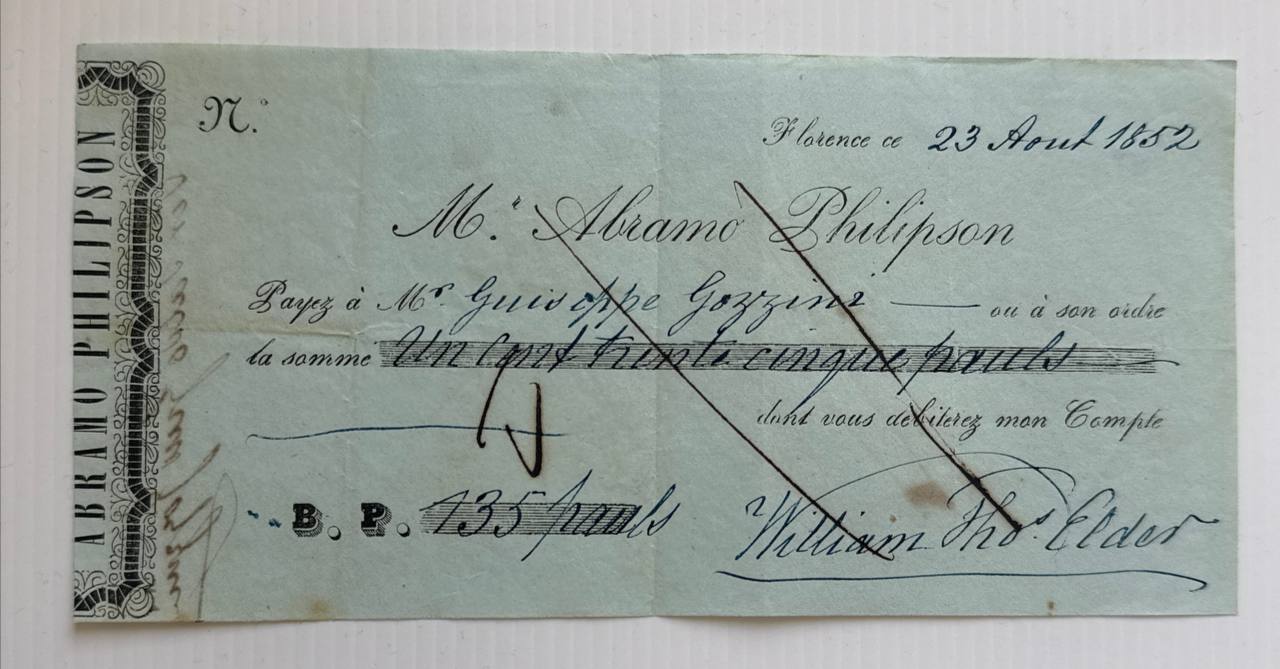 ABRAMO PHILIPSON
N.º
Florence ce 23 Aout 1852
M.r Abramo Philipson
Payez à Mr Guiseppe Gozzini ou à son ordre
la somme Un Cent trente cinque pauls
dont vous debiterez mon Compte
B. P. 135 pauls
William Thos Elder